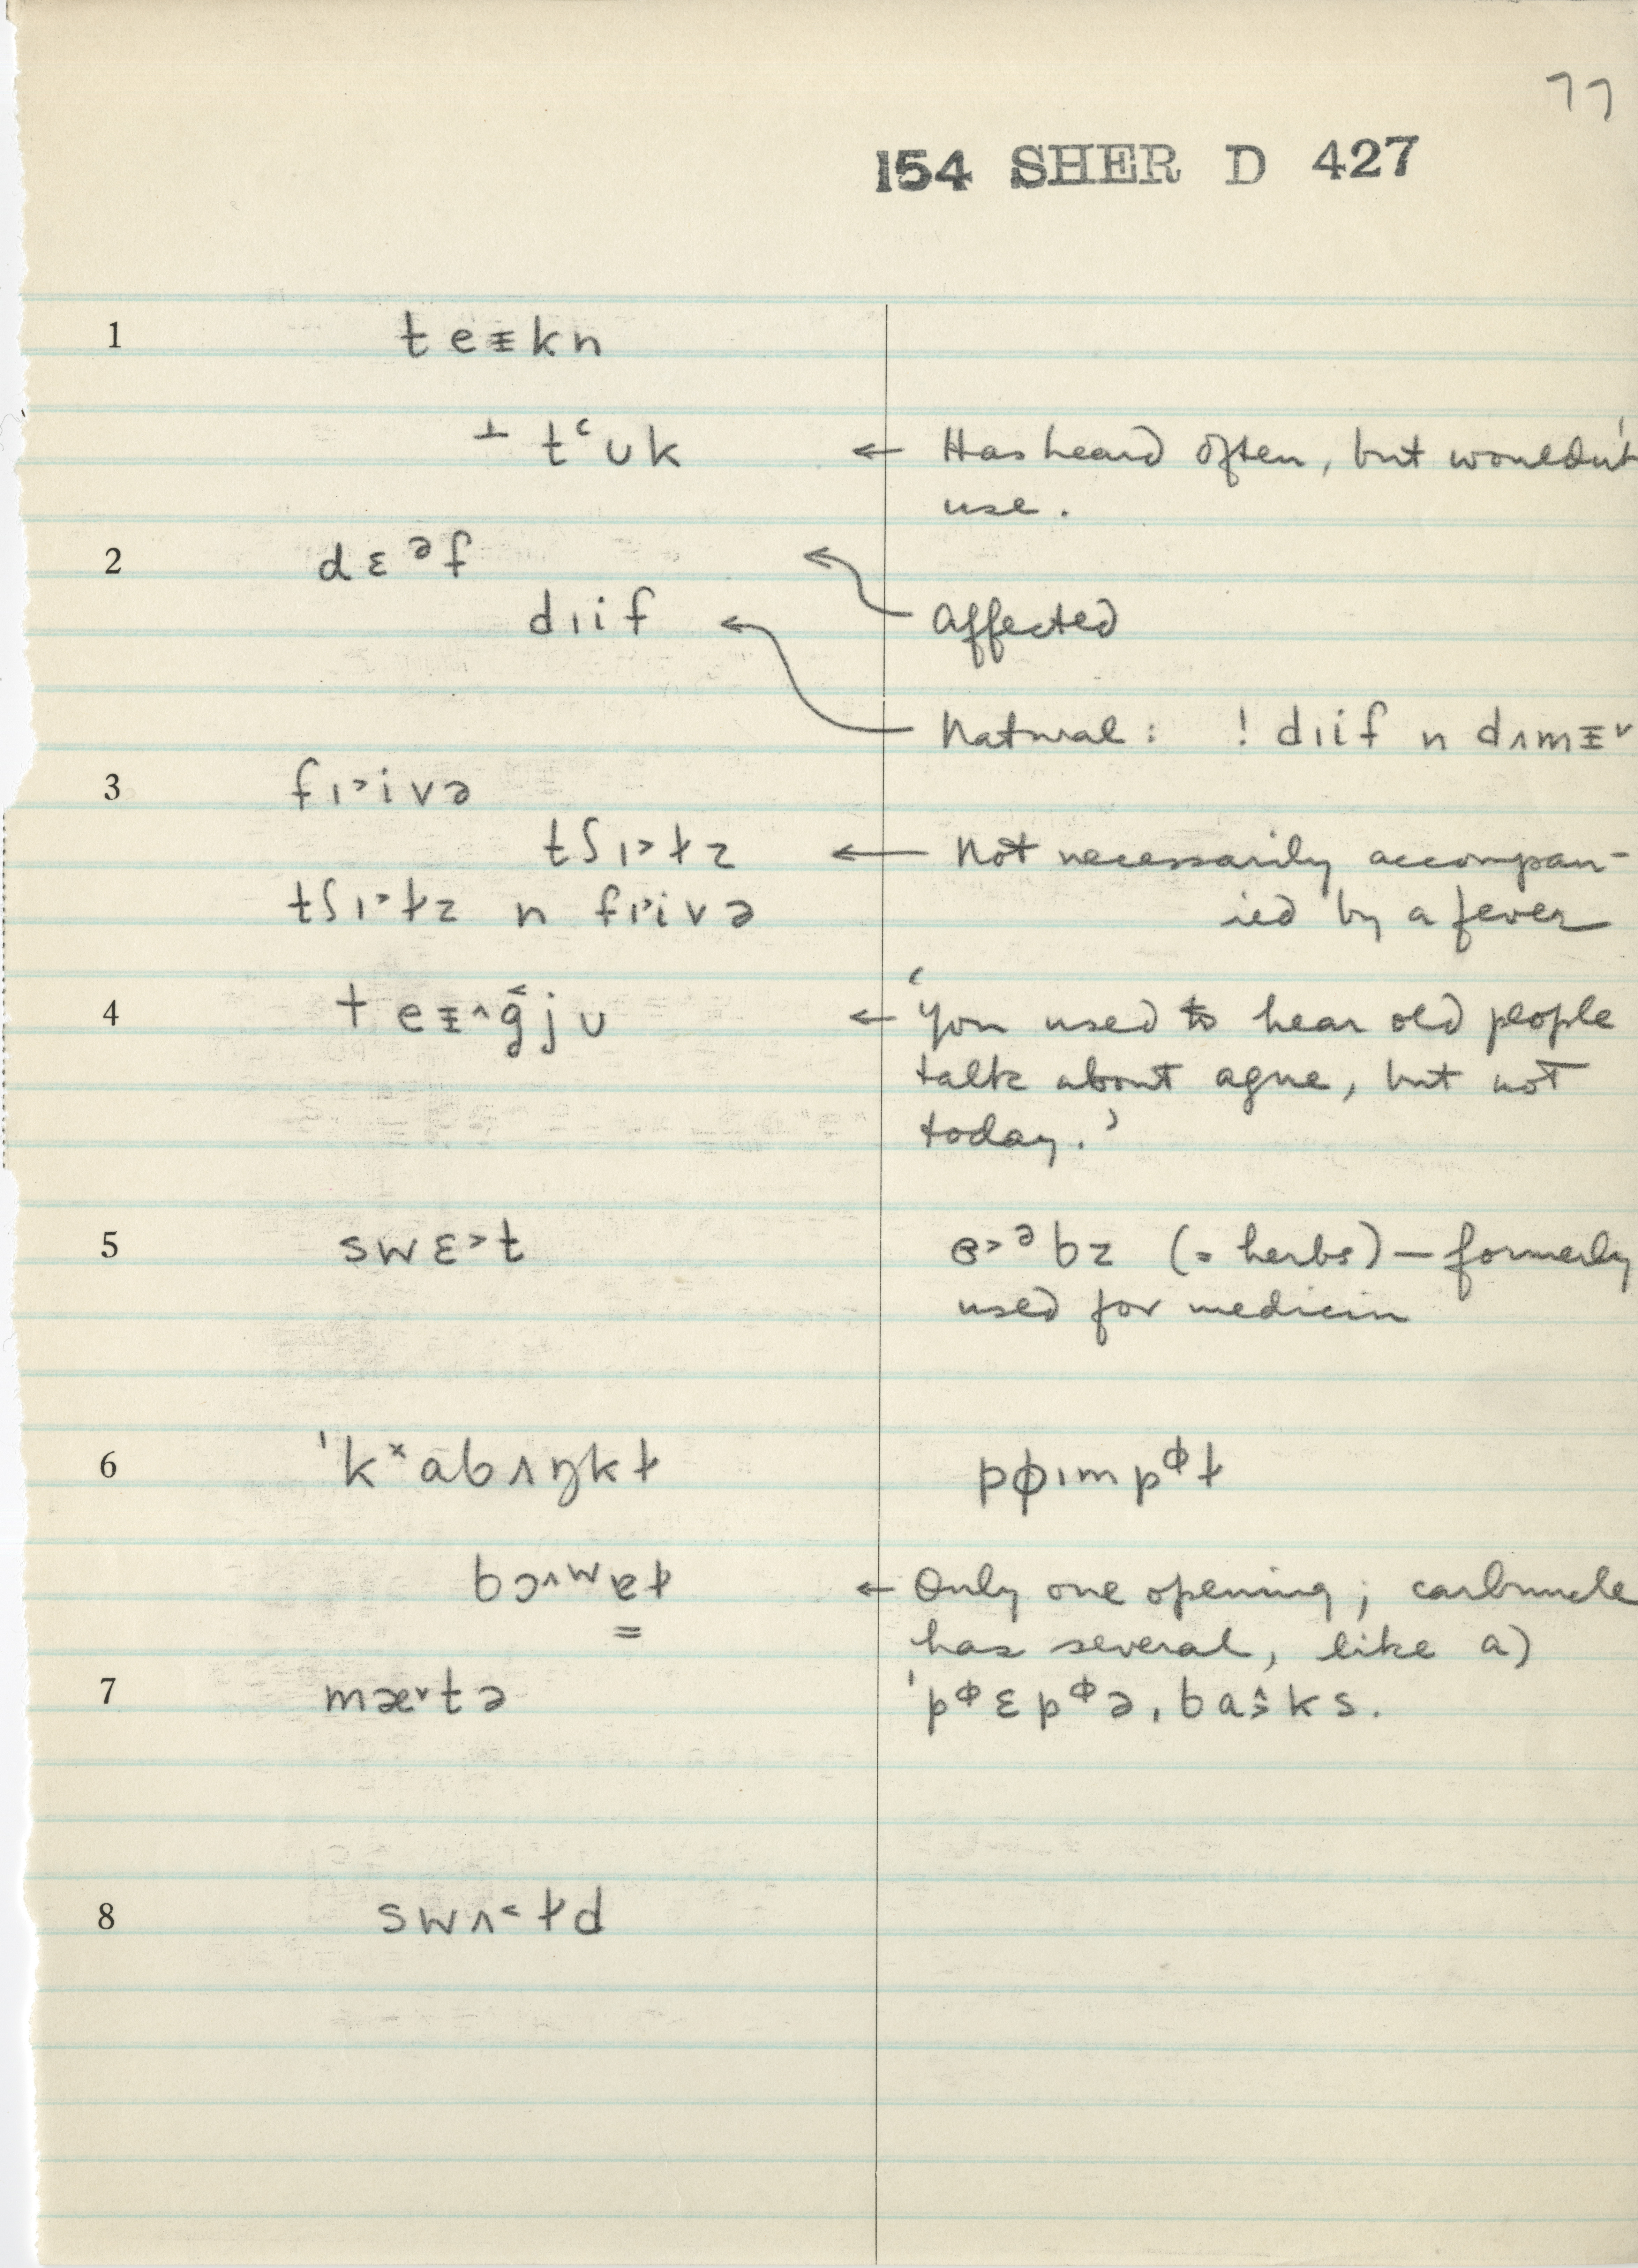 77
154 SHER D 427
1 t e ᵻ k n
⊥ tʿ ʊ k ← Has heard often, but wouldn't
use.
2 d ɛ ᵊ f
d ɪ i f ← Affected
← Natural: ! d ɪ i f n d ʌ m ᵻ ˅
3 f ɪ ˃ i v ə
t ʃ ɪ ˃ ɫ z ← Not necessarily accompan-
t ʃ ɪ ˃ ɫ z n f ɪ ˃ i v ə ied by a fever
4 † e ᵻ ˄ g̑ j ʊ ← 'You used to hear old people
talk about ague, but not
today.'
5 s w ɛ ˃ t ɞ ˃ ᵊ b z (= herbs) — formerly
used for medicin
6 ˈk ˣ a b ʌ ŋ k ɫ p ɸ ɪ m p ᶲ ɫ
b ɔ ˄ ʷ ɐ ɫ ← Only one opening; carbuncle
has several, like a)
7 m æ ˅ t ə ˈp ᶲ ɛ p ᶲ ə ˌ b a s̑ k s.
8 s w ʌ ˂ ɫ d